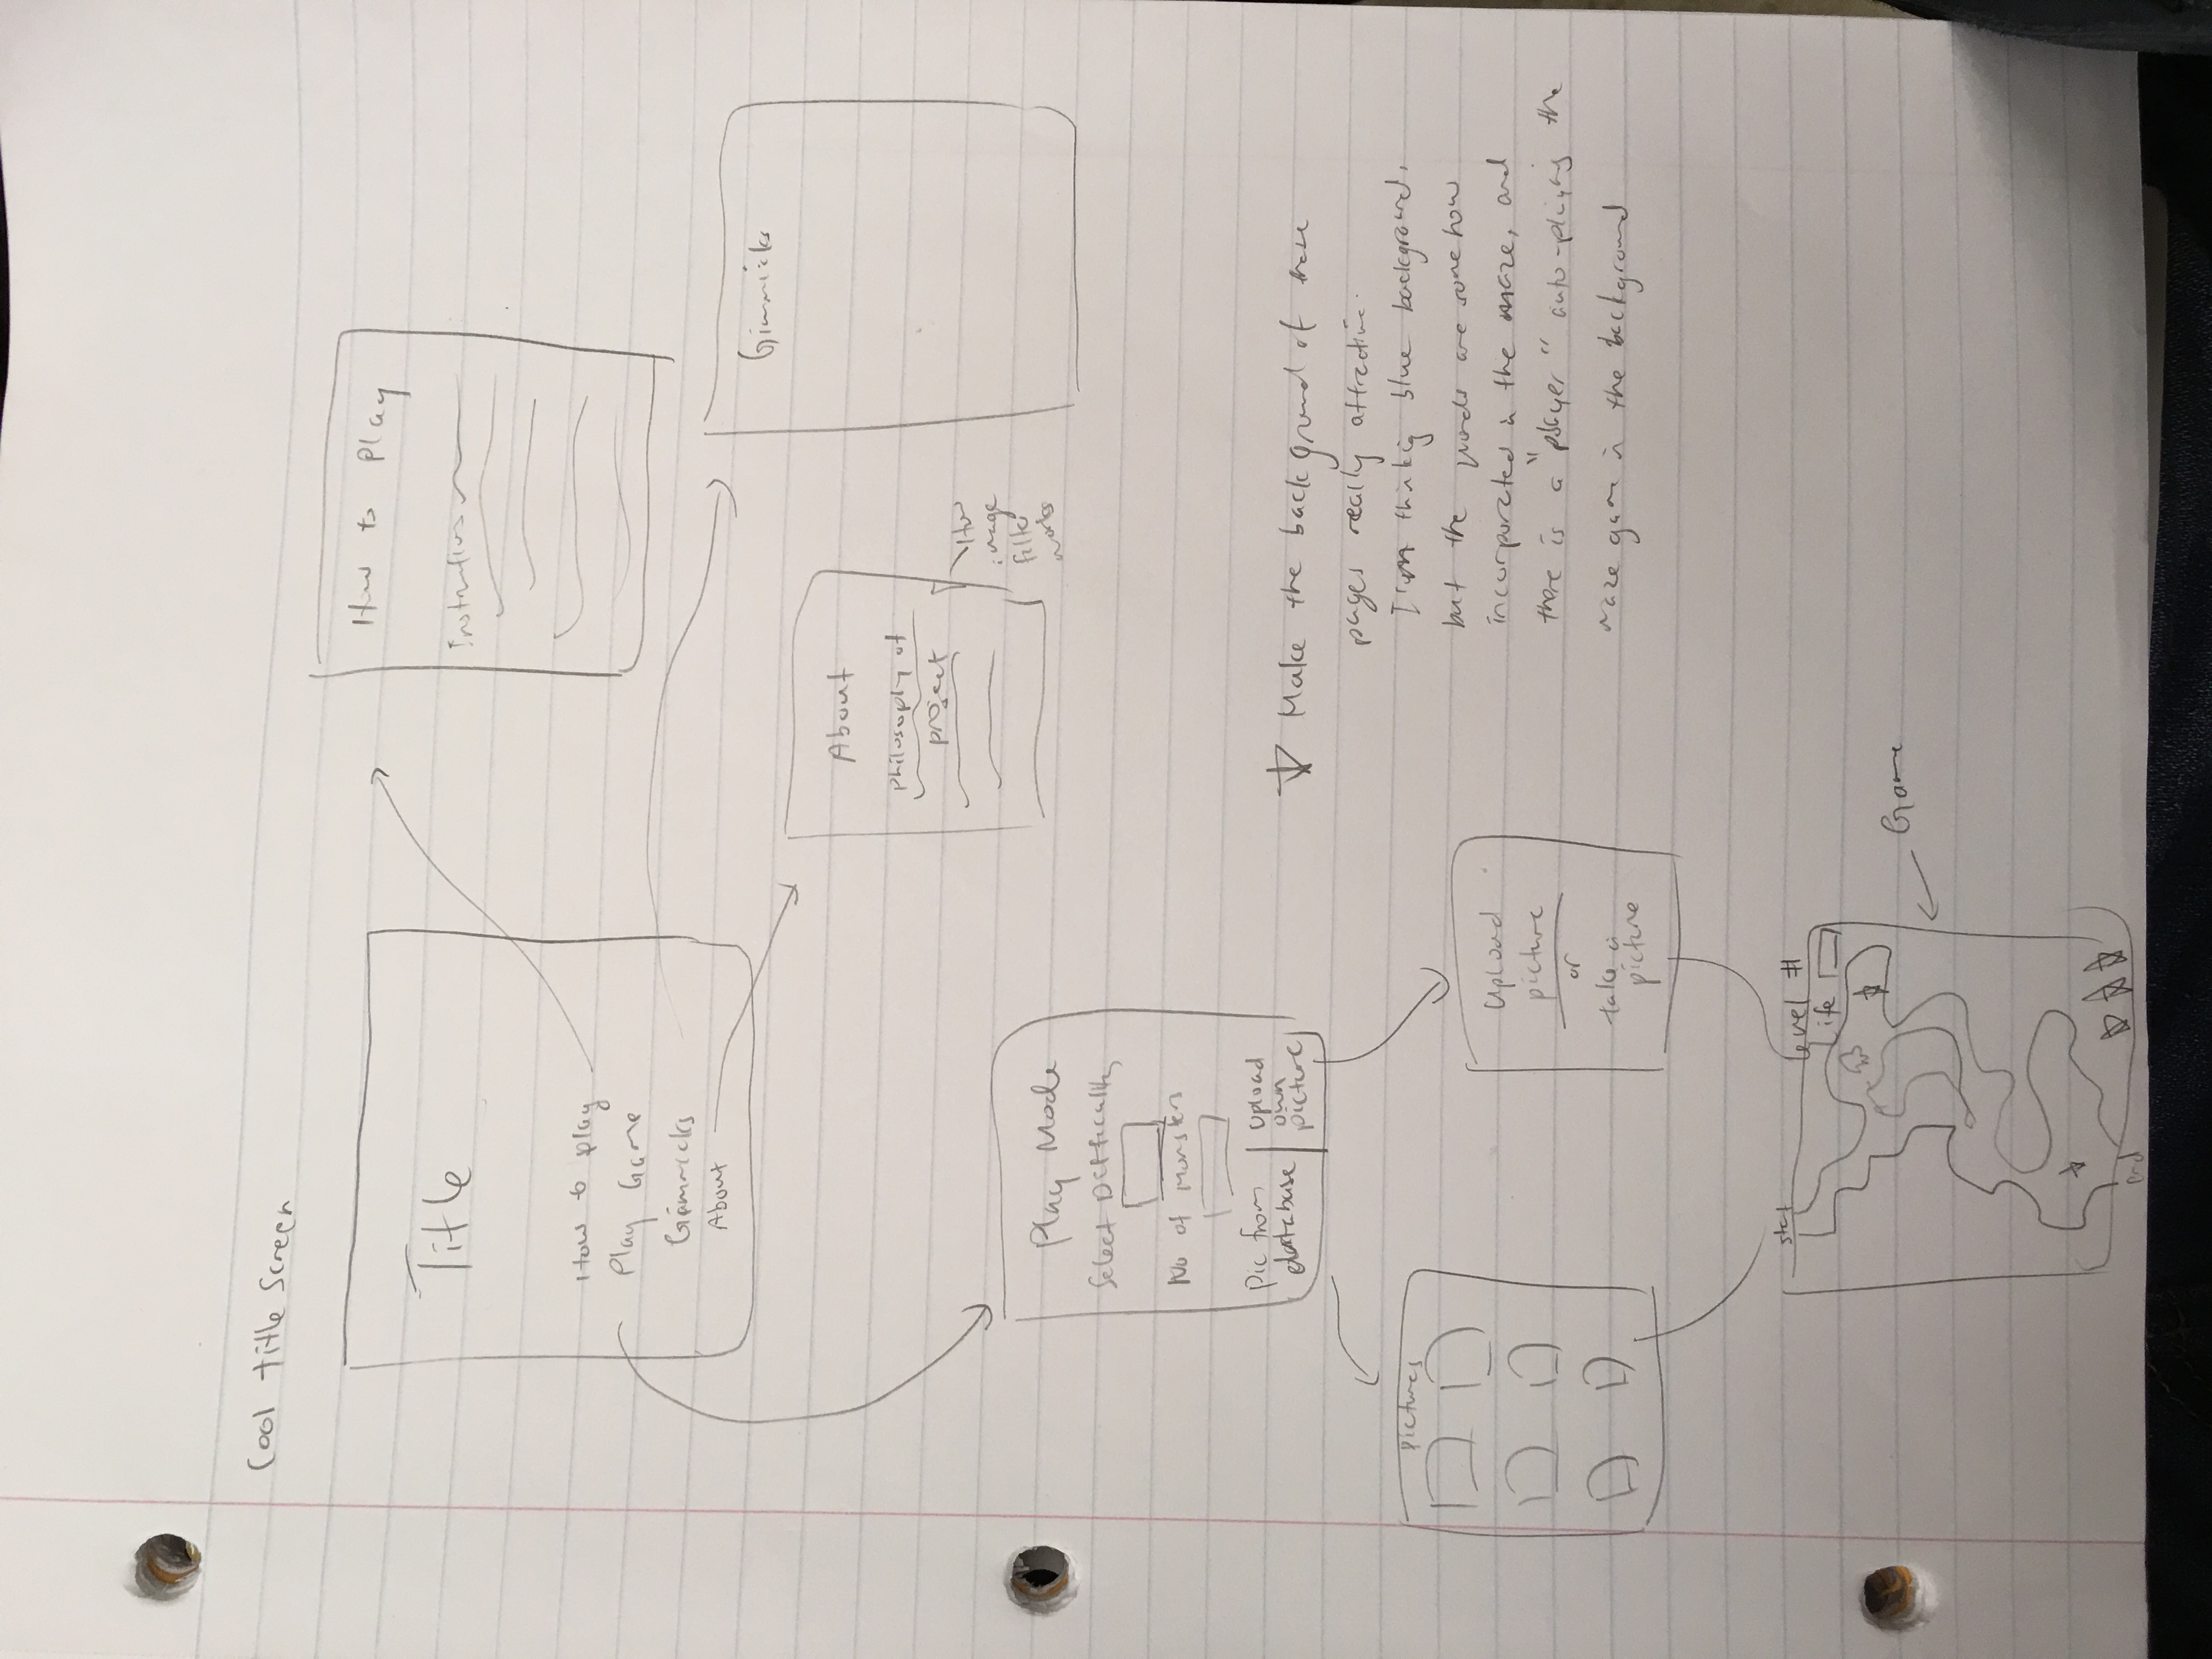 Cool title screen
Title
How to play
Play Game
Gimmicks
About
How to Play
Instructions
Gimmicks
About
philosophy of
project
How
image
filter
works
Play Mode
Select Difficulty
No of monsters
Pic from
database
upload
own
picture
Pictures
Upload
picture
or
take a
picture
Make the background of these
pages really attractive.
I'm thinking blue background,
but the words are somehow
incorporated in the maze, and
there is a "player" auto-playing the
maze game in the background
start
Level #
Life
Game
end